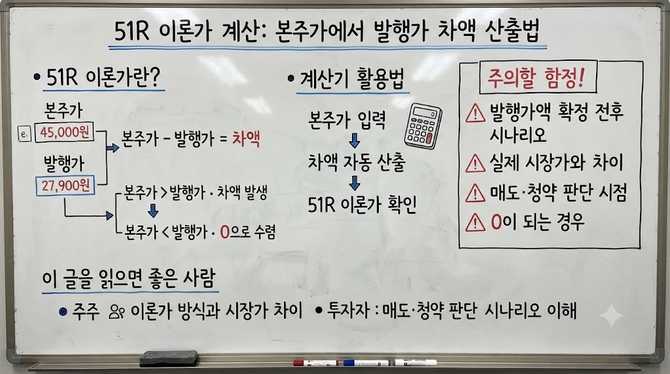 51R 이론가 계산: 본주가에서 발행가 차액 산출법
• 51R 이론가란?
본주가
e. 45,000원
발행가
27,900원
본주가 - 발행가 = 차액
본주가 > 발행가 · 차액 발생
본주가 < 발행가 · 0으로 수렴
• 계산기 활용법
본주가 입력
차액 자동 산출
51R 이론가 확인
주의할 함정!
발행가액 확정 전후
시나리오
실제 시장가와 차이
매도·청약 판단 시점
0이 되는 경우
이 글을 읽으면 좋은 사람
• 주주 이론가 방식과 시장가 차이 • 투자자 : 매도·청약 판단 시나리오 이해